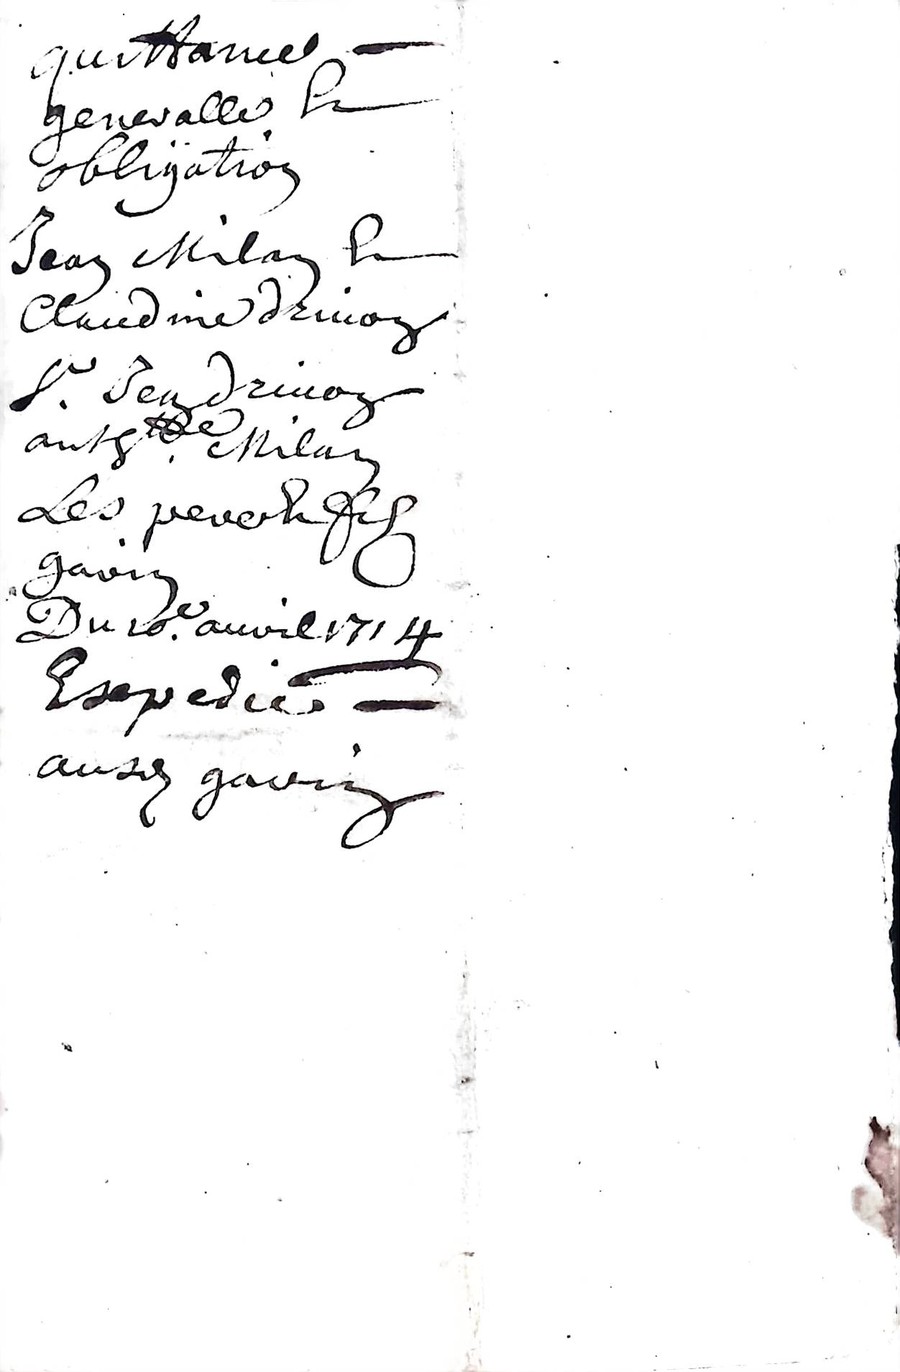 quittance
generalle Et
obligation
Jean Milan Et
Claudine drivon
Sr. Jean drivon
anthtte. Milan
Les pere Et fils
gavin
Du 10e. auvril 1714
Expedie
ausd gavin